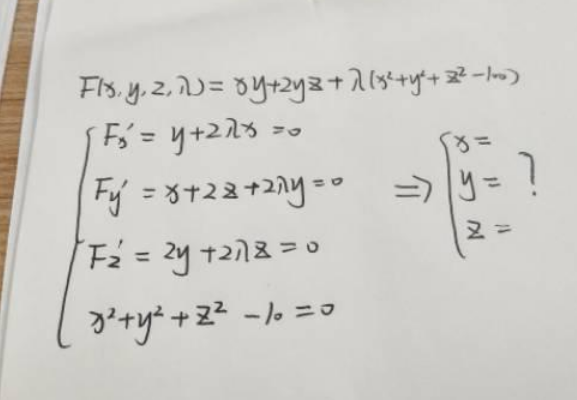 F(x,y,z,λ)= xy+2yz+λ(x²+y²+z²-100)
Fx' = y+2λx =0
Fy' = x+2z+2λy=0
Fz' = 2y+2λz=0
x²+y²+z²-10=0
⇒ { x=
y=
z=
?